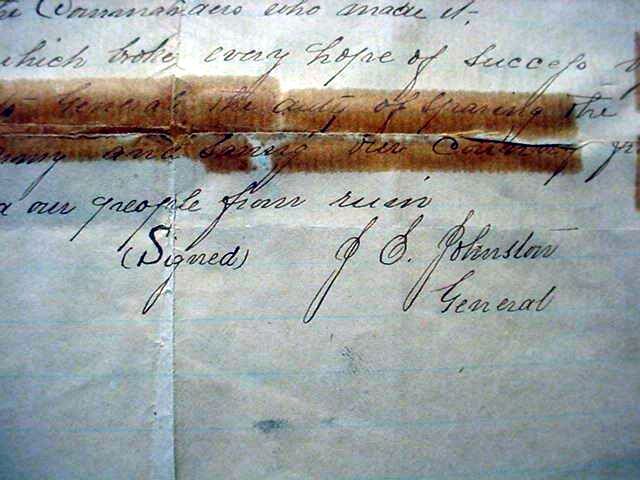 the Commanders who made it.
which broke every hope of success
General the duty of sparing the
and saving our country
our people from ruin
(Signed) J E. Johnston
General